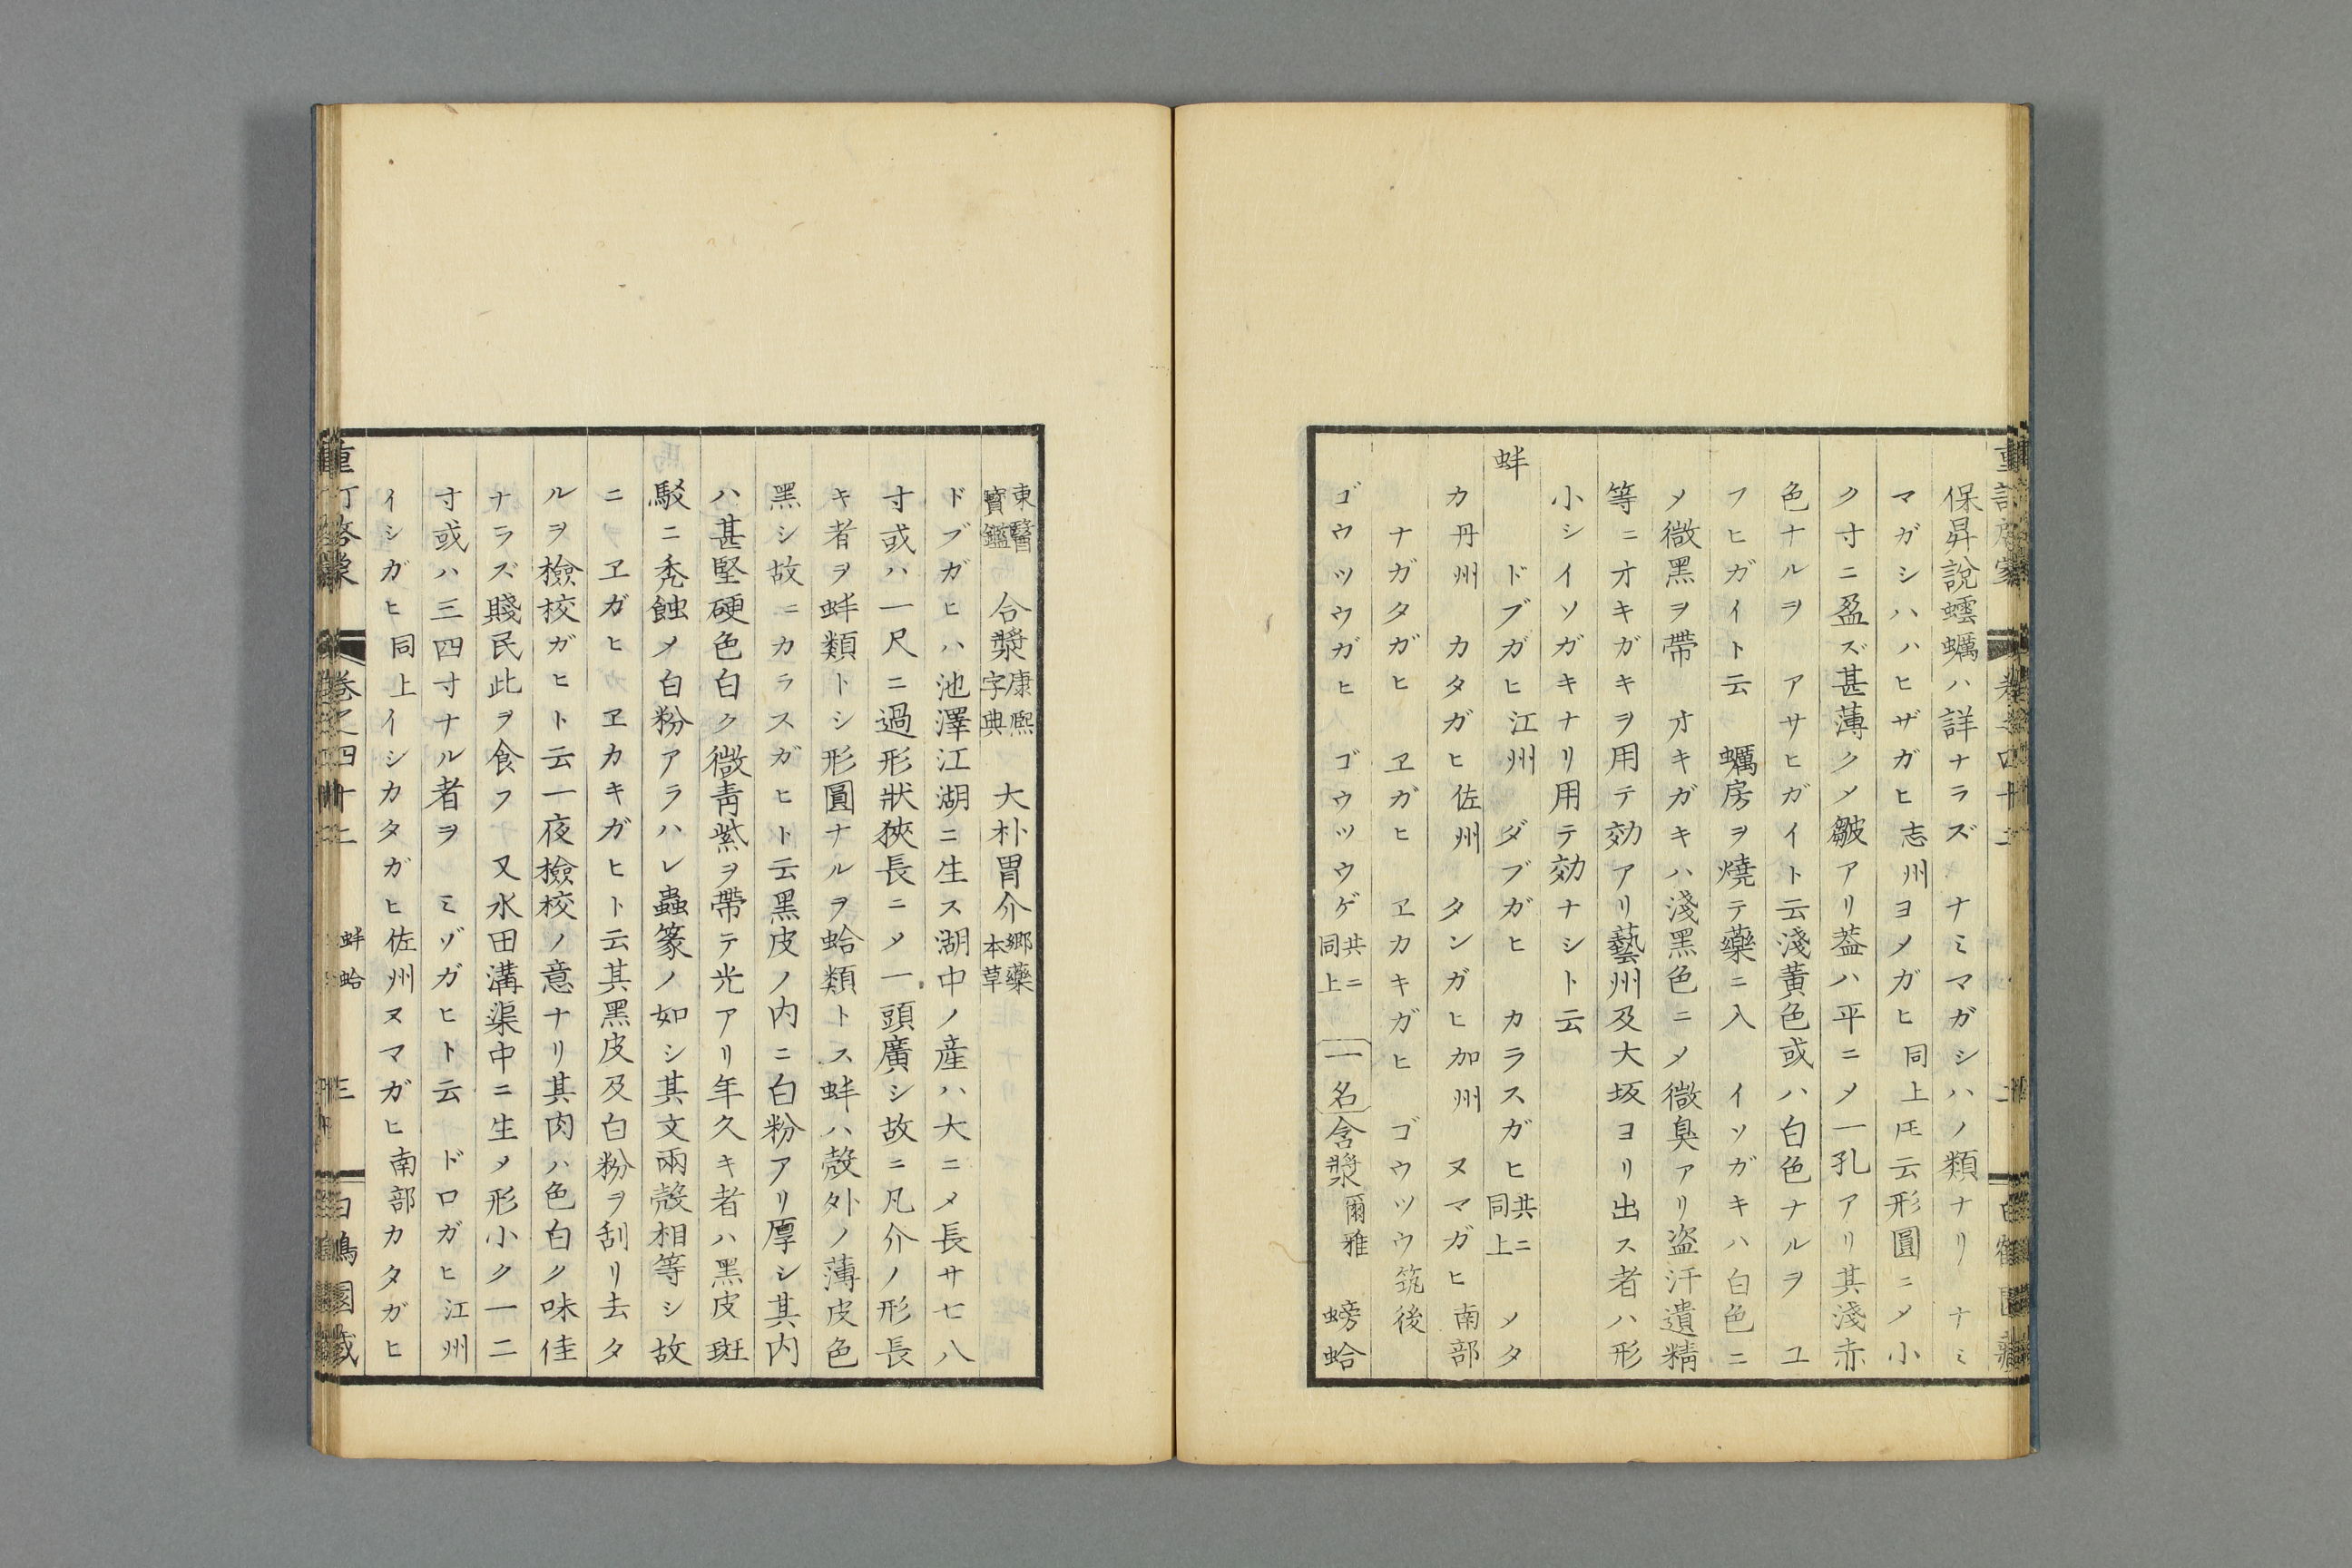 保昇說蠕蠣ハ詳ナラズ　ナミマガシハノ類ナリ　ナミ
マガシハハヒザガヒ志州ヨメガヒ同上𪜈云形圓ニメ小
ク寸ニ盈ズ甚薄クメ皺アリ葢ハ平ニメ一孔アリ其淺赤
色ナルヲ　アサヒガイト云淺黃色或ハ白色ナルヲ　ユ
フヒガイト云　蠣房ヲ燒テ藥ニ入　イソガキハ白色ニ
メ微黑ヲ帶　オキガキハ淺黑色ニメ微臭アリ盗汗遺精
等ニオキガキヲ用テ効アリ藝州及大坂ヨリ出ス者ハ形
小シイソガキナリ用テ効ナシト云
蚌　ドブガヒ江州　ダブガヒ　カラスガヒ共ニ同上　メタ
カ丹州　カタガヒ佐州　タンガヒ加州　ヌマガヒ南部
ナガタガヒ　ヱガヒ　ヱカキガヒ　ゴウツウ筑後
ゴウツウガヒ　ゴウツウゲ共ニ同上　一名含漿爾雅　螃蛤
東醫寶鑑　合漿康熙字典　大朴胃介郷藥本草
ドブガヒハ池澤江湖ニ生ス湖中ノ産ハ大ニメ長サ七八
寸或ハ一尺ニ過形狀狹長ニメ一頭廣シ故ニ凡介ノ形長
キ者ヲ蚌類トシ形圓ナルヲ蛤類トス蚌ハ殻外ノ薄皮色
黑シ故ニカラスガヒト云黑皮ノ内ニ白粉アリ厚シ其内
ハ甚堅硬色白ク微靑紫ヲ帶テ光アリ年久キ者ハ黑皮斑
駁ニ禿蝕メ白粉アラハレ蟲篆ノ如シ其文兩殻相等シ故
ニ　ヱガヒ　ヱカキガヒト云其黑皮及白粉ヲ刮リ去タ
ルヲ檢校ガヒト云一夜檢校ノ意ナリ其肉ハ色白ク味佳
ナラズ賤民此ヲ食フ　又水田溝渠中ニ生メ形小ク一二
寸或ハ三四寸ナル者ヲ　ミゾガヒト云　ドロガヒ江州
イシガヒ同上イシカタガヒ佐州ヌマガヒ南部カタガヒ
卷之四十二　蚌蛤　三